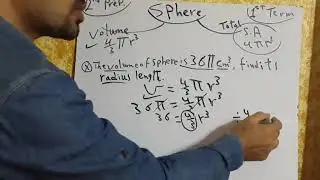 2nd Prep.
Sphere
1st Term
Volume
4/3 π r³
Total
S.A
4πr²
The volume of sphere is 36π cm³, find its
radius length.
V = 4/3 π r³
36π = 4/3 π r³
36 = 4/3 r³
÷ 4